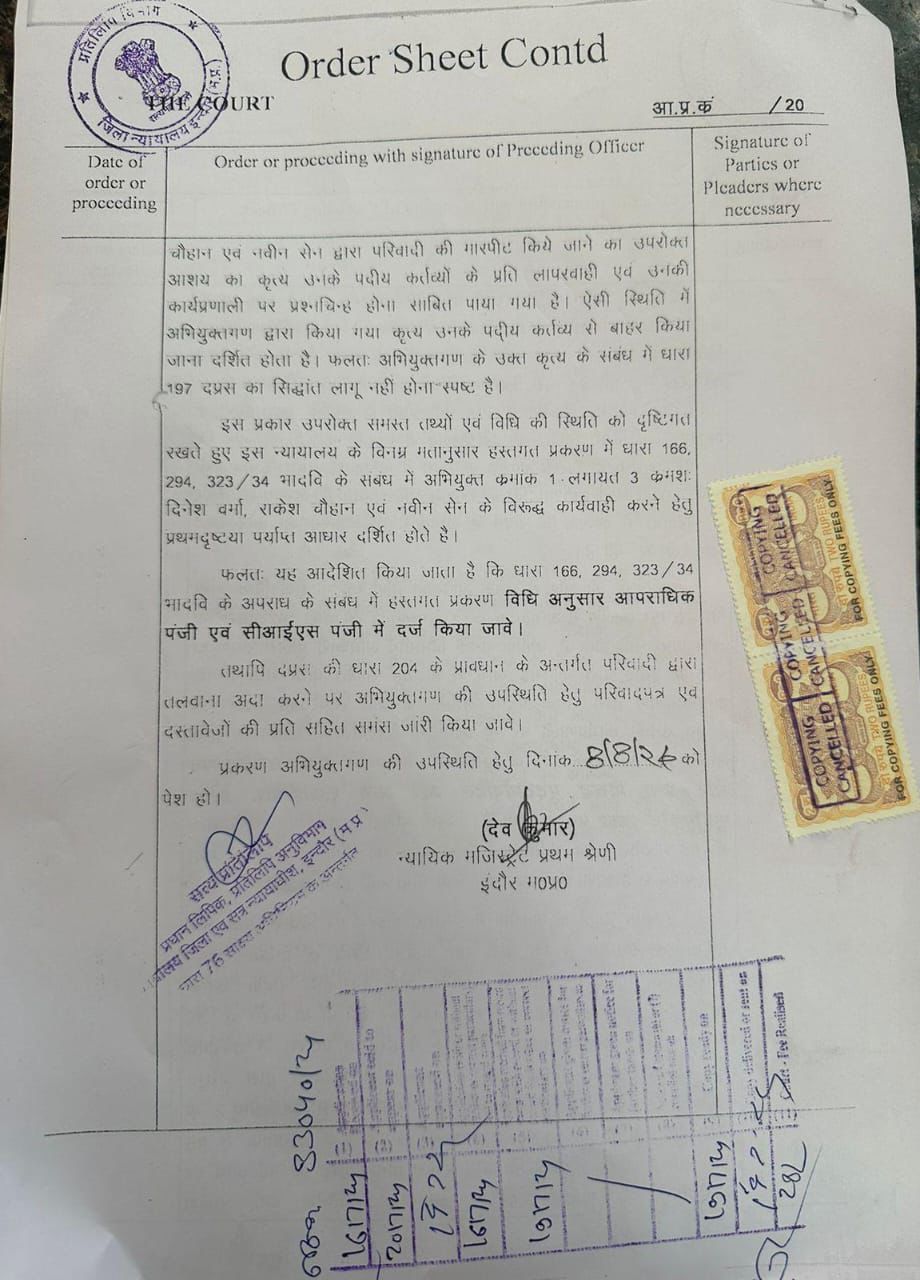 प्रतिलिपि विभाग
जिला न्यायालय इन्दौर (म.प्र.)
Order Sheet Contd
THE COURT
आ.प्र.कं /20
Date of
order or
proceeding
Order or proceeding with signature of Preceding Officer
Signature of
Parties or
Pleaders where
necessary
चौहान एवं नवीन सेन द्वारा परिवादी की मारपीट किये जाने का उपरोक्त
आशय का कृत्य उनके पदीय कर्तव्यों के प्रति लापरवाही एवं उनकी
कार्यप्रणाली पर प्रश्नचिन्ह होना साबित पाया गया है। ऐसी स्थिति में
अभियुक्तगण द्वारा किया गया कृत्य उनके पदीय कर्तव्य से बाहर किया
जाना दर्शित होता है। फलतः अभियुक्तगण के उक्त कृत्य के संबंध में धारा
197 दप्रस का सिद्धांत लागू नहीं होना स्पष्ट है।
इस प्रकार उपरोक्त समस्त तथ्यों एवं विधि की स्थिति को दृष्टिगत
रखते हुए इस न्यायालय के विनम्र मतानुसार हस्तगत प्रकरण में धारा 166,
294, 323/34 भादवि के संबंध में अभियुक्त कमांक 1 लगायत 3 कमशः
दिनेश वर्मा, राकेश चौहान एवं नवीन सेन के विरूद्ध कार्यवाही करने हेतु
प्रथमदृष्टया पर्याप्त आधार दर्शित होते है।
फलतः यह आदेशित किया जाता है कि धारा 166, 294, 323/34
भादवि के अपराध के संबंध में हस्तगत प्रकरण विधि अनुसार आपराधिक
पंजी एवं सीआईएस पंजी में दर्ज किया जावे।
तथापि दप्रस की धारा 204 के प्रावधान के अन्तर्गत परिवादी द्वारा
तलवाना अदा करने पर अभियुक्तगण की उपस्थिति हेतु परिवादपत्र एवं
दस्तावेजों की प्रति सहित समंस जारी किया जावे।
प्रकरण अभियुक्तगण की उपस्थिति हेतु दिनांक 8/8/24 को
पेश हो।
(देव कुमार)
न्यायिक मजिस्ट्रेट प्रथम श्रेणी
इंदौर म०प्र०
सत्य प्रतिलिपि
प्रधान लिपिक, प्रतिलिपि अनुविभाग
जिला एवं सत्र न्यायाधीश, इन्दौर (म.प्र.
76 साक्ष्य अधिनियम के अन्तर्गत
COPYING
CANCELLED
COPYING
CANCELLED
COPYING
CANCELLED
दो रुपये TWO RUPEES
FOR COPYING FEES ONLY
TWO RUPEES
FOR COPYING FEES ONLY
83040/24
Copy ready on
delivered or sent on
Court - Fee Realised